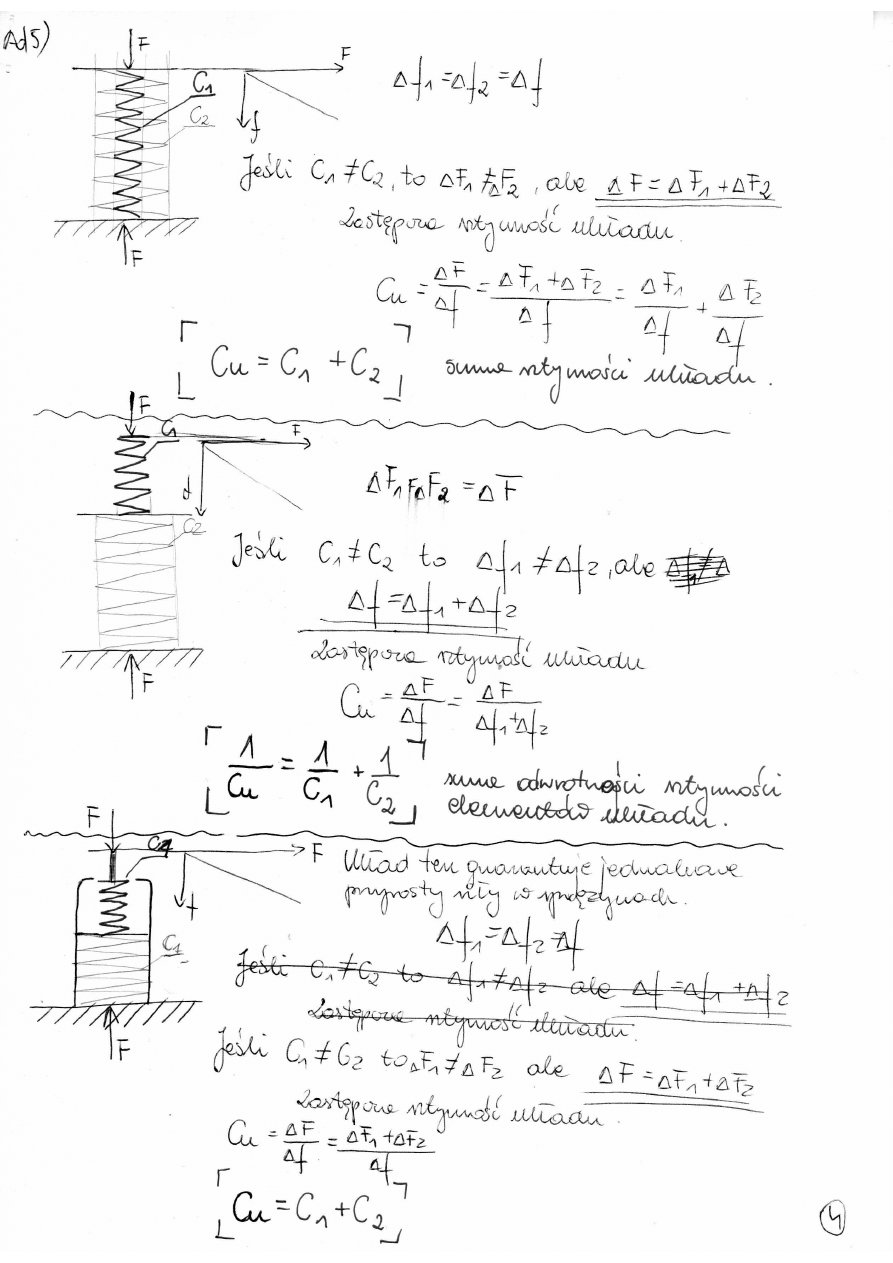 Ad5)
F
F
C₁
C₂
f
F
Δf₁ = Δf₂ = Δf
Jeśli C₁ ≠ C₂, to ΔF₁ ≠ ΔF₂, ale ΔF = ΔF₁ + ΔF₂
Zastępcza sztywność układu.
Cu = ΔF/Δf = (ΔF₁ + ΔF₂)/Δf = ΔF₁/Δf + ΔF₂/Δf
Cu = C₁ + C₂ suma sztywności układu.
F
C₁
F
f
C₂
F
ΔF₁ = ΔF₂ = ΔF
Jeśli C₁ ≠ C₂ to Δf₁ ≠ Δf₂, ale
Δf = Δf₁ + Δf₂
Zastępcza sztywność układu
Cu = ΔF/Δf = ΔF/(Δf₁ + Δf₂)
1/Cu = 1/C₁ + 1/C₂ suma odwrotności sztywności
elementów układu.
F
F
f
C₁
F
Układ ten gwarantuje jednakowe
przyrosty siły w sprężynach.
Δf₁ = Δf₂ = Δf
Jeśli C₁ ≠ C₂ to Δf₁ ≠ Δf₂ ale Δf = Δf₁ + Δf₂
Zastępcza sztywność układu.
Jeśli C₁ ≠ C₂ to ΔF₁ ≠ ΔF₂ ale ΔF = ΔF₁ + ΔF₂
Zastępcza sztywność układu.
Cu = ΔF/Δf = (ΔF₁ + ΔF₂)/Δf
Cu = C₁ + C₂
4